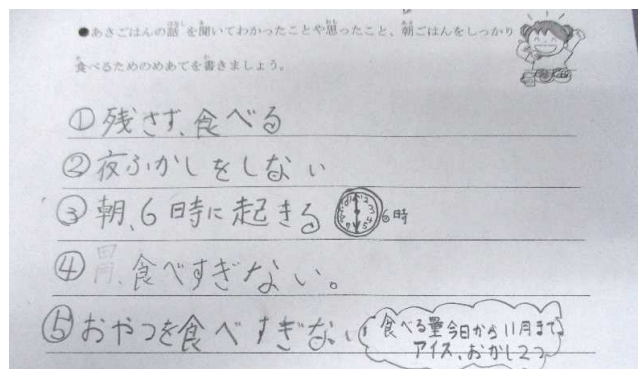 ●あさごはんの話を聞いてわかったことや思ったこと、朝ごはんをしっかり
食べるためのめあてを書きましょう。
①残さず、食べる
②夜ふかしをしない
③朝、6時に起きる 6時
④胃、食べすぎない。
⑤おやつを食べすぎない
食べる量今日から11月まで
アイス、おかし2つ